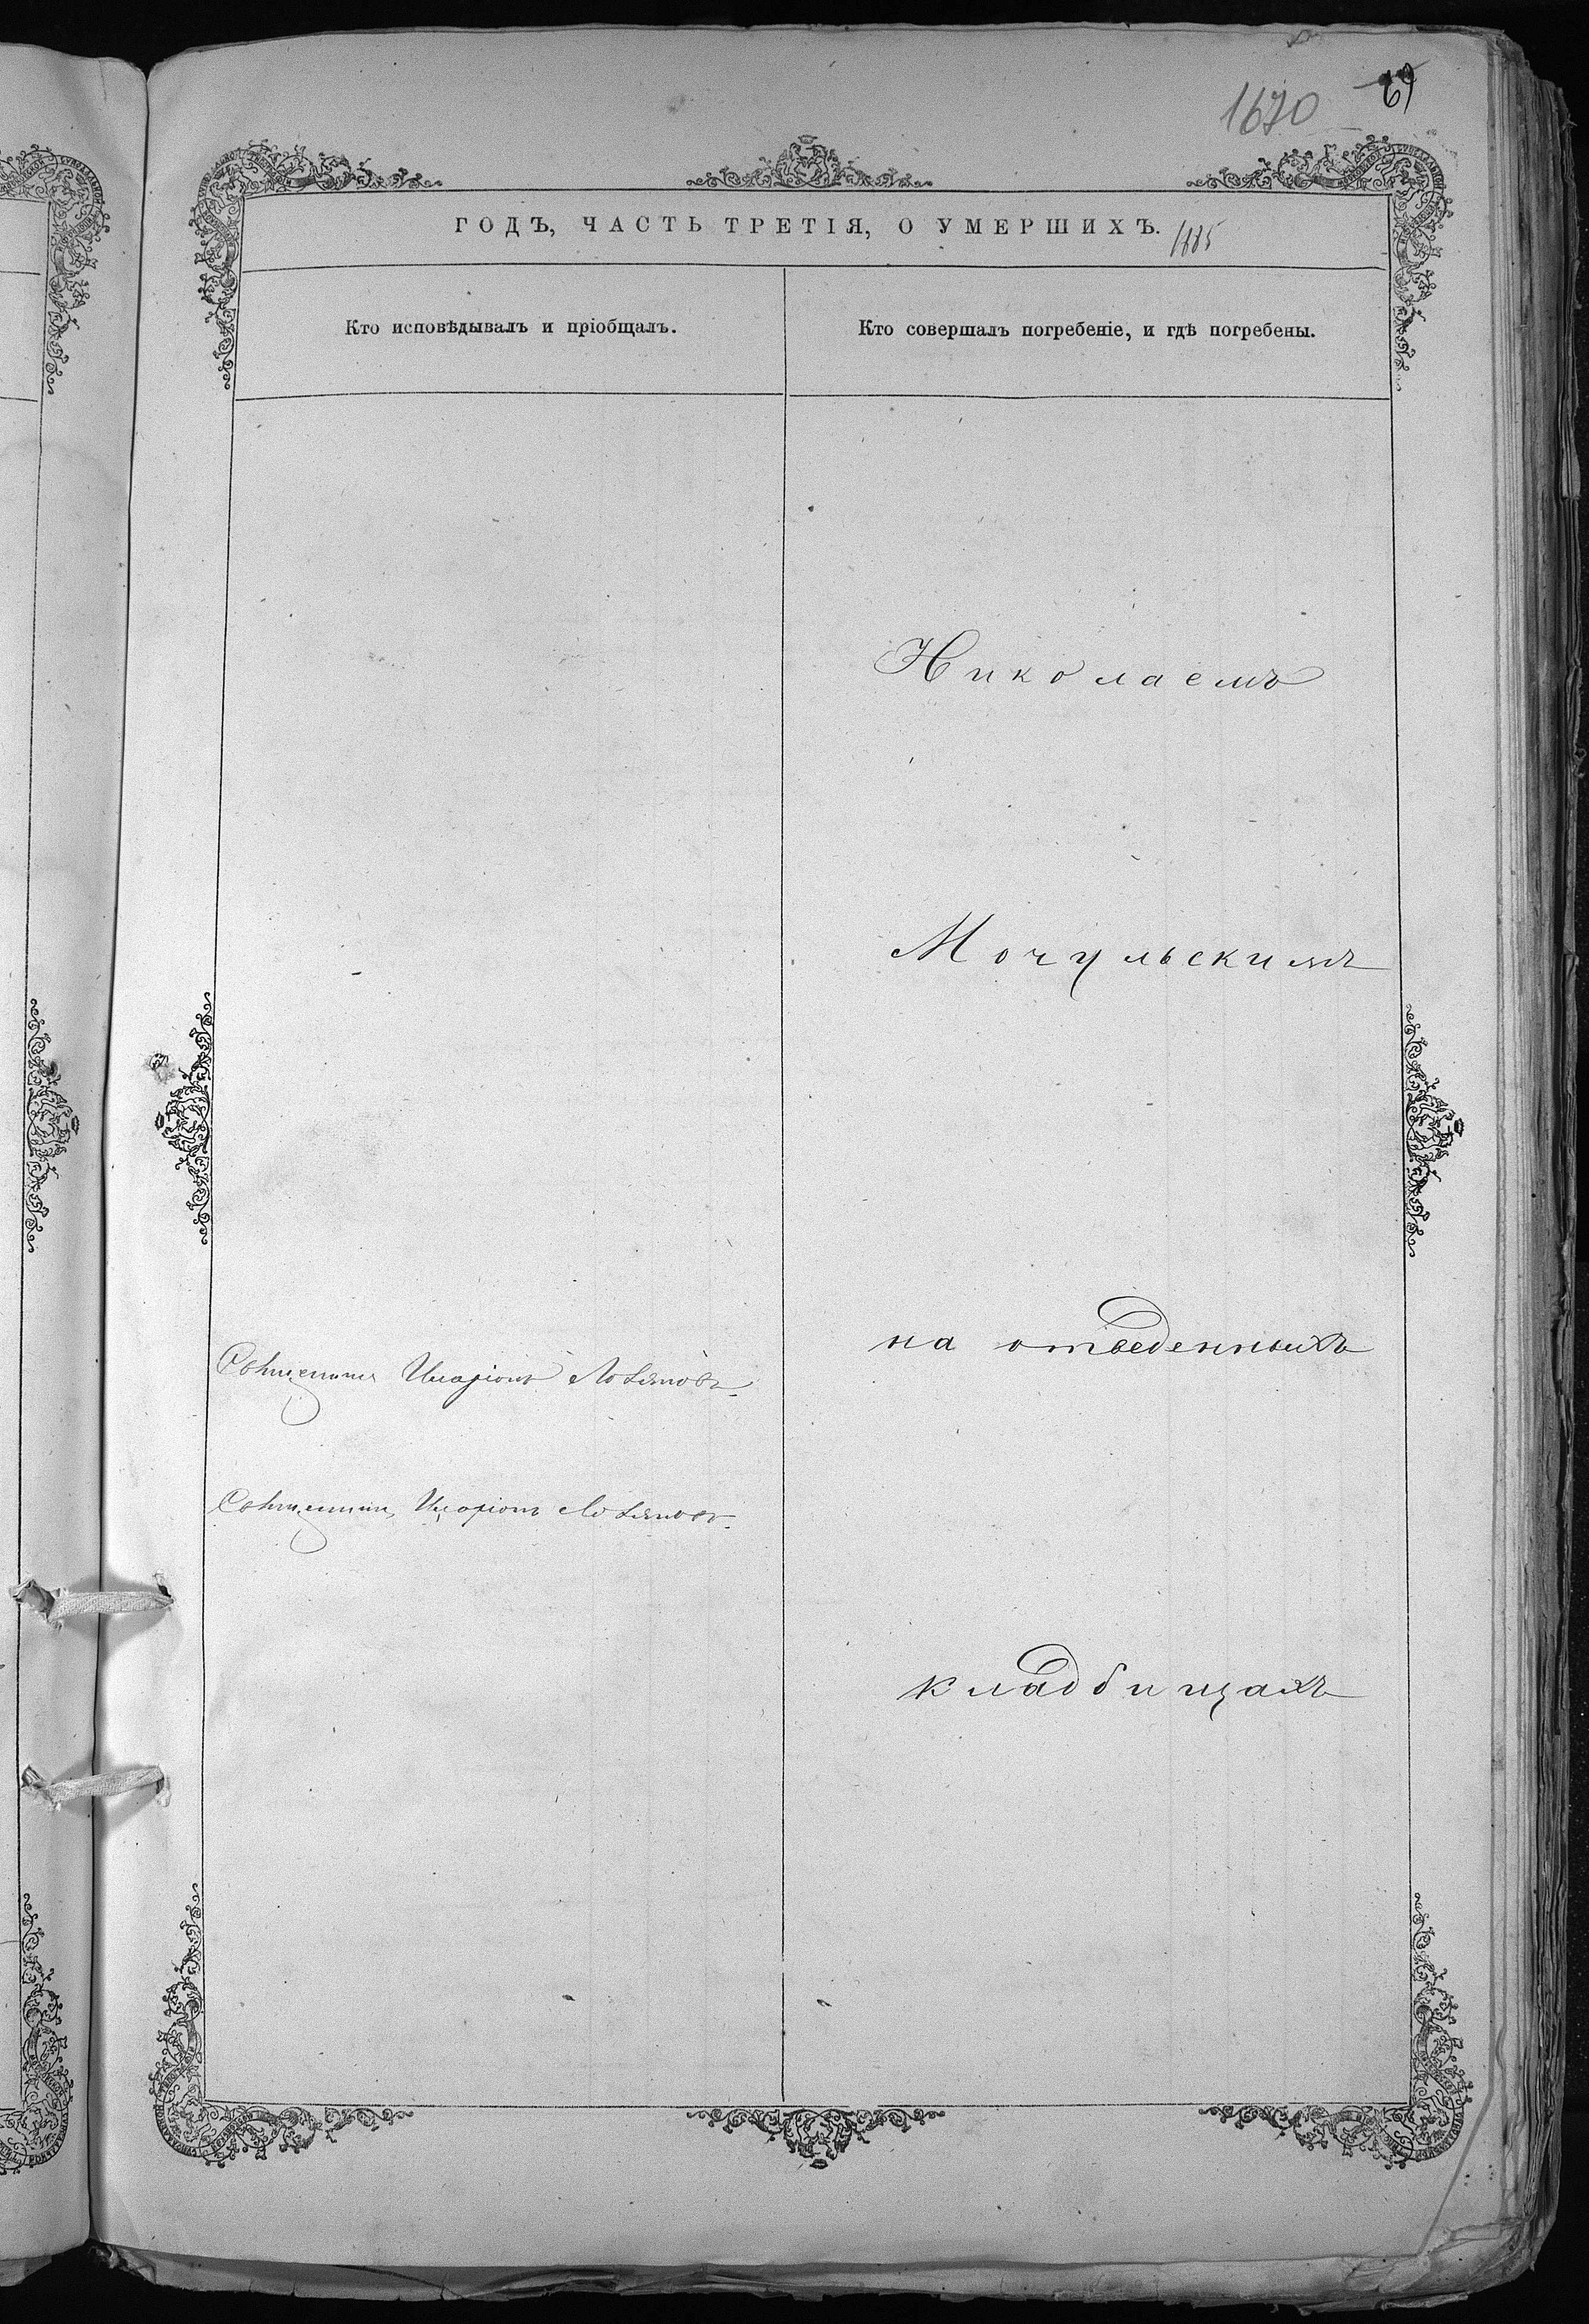 1670
69
ГОДЪ, ЧАСТЬ ТРЕТІЯ, О УМЕРШИХЪ. 1885
Кто исповѣдывалъ и пріобщалъ.
Кто совершалъ погребеніе, и гдѣ погребены.
Николаемъ
Мочульскимъ
на отведенныхъ
Священник Иларіонъ
Священник Иларіонъ
кладбищахъ